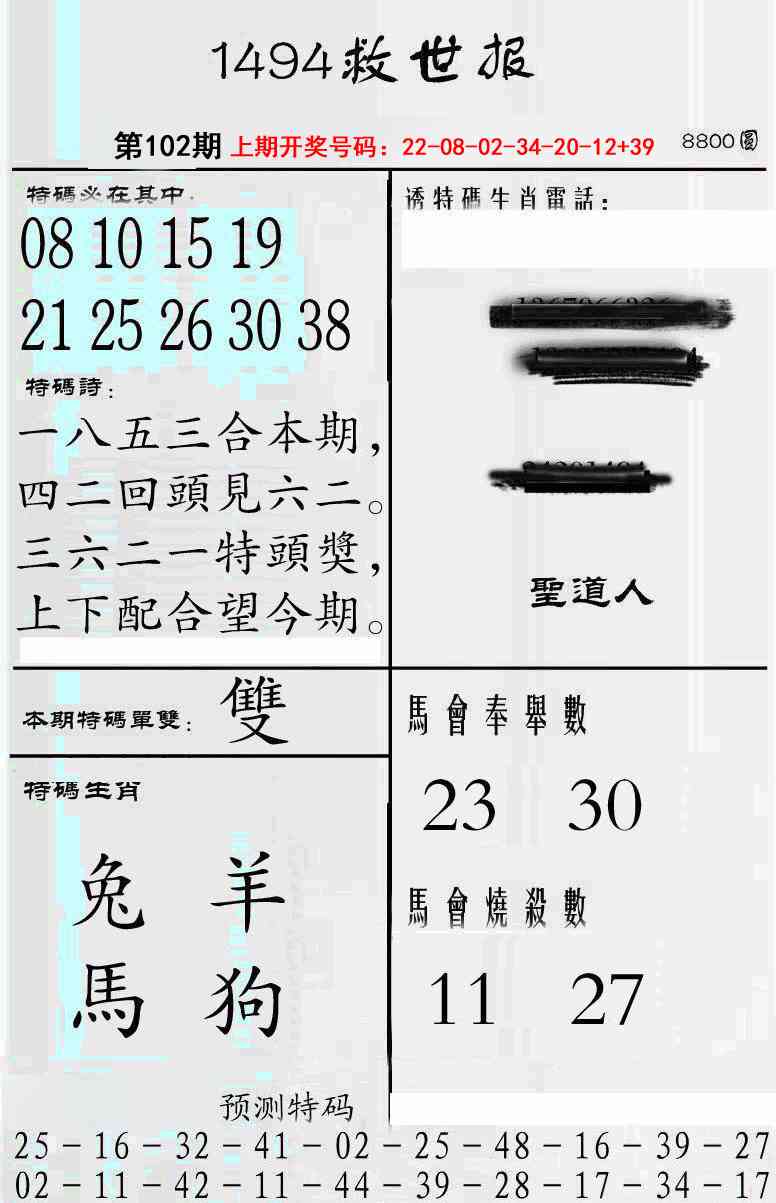 1494救世报
第102期 上期开奖号码：22-08-02-34-20-12+39 8800圆
特碼必在其中：
08 10 15 19
21 25 26 30 38
特碼詩：
一八五三合本期，
四二回頭見六二。
三六二一特頭獎，
上下配合望今期。
透特碼生肖電話：
聖道人
本期特碼單雙：雙
特碼生肖
兔 羊
馬 狗
馬會奉舉數
23 30
馬會燒殺數
11 27
预测特码
25－16－32－41－02－25－48－16－39－27
02－11－42－11－44－39－28－17－34－17